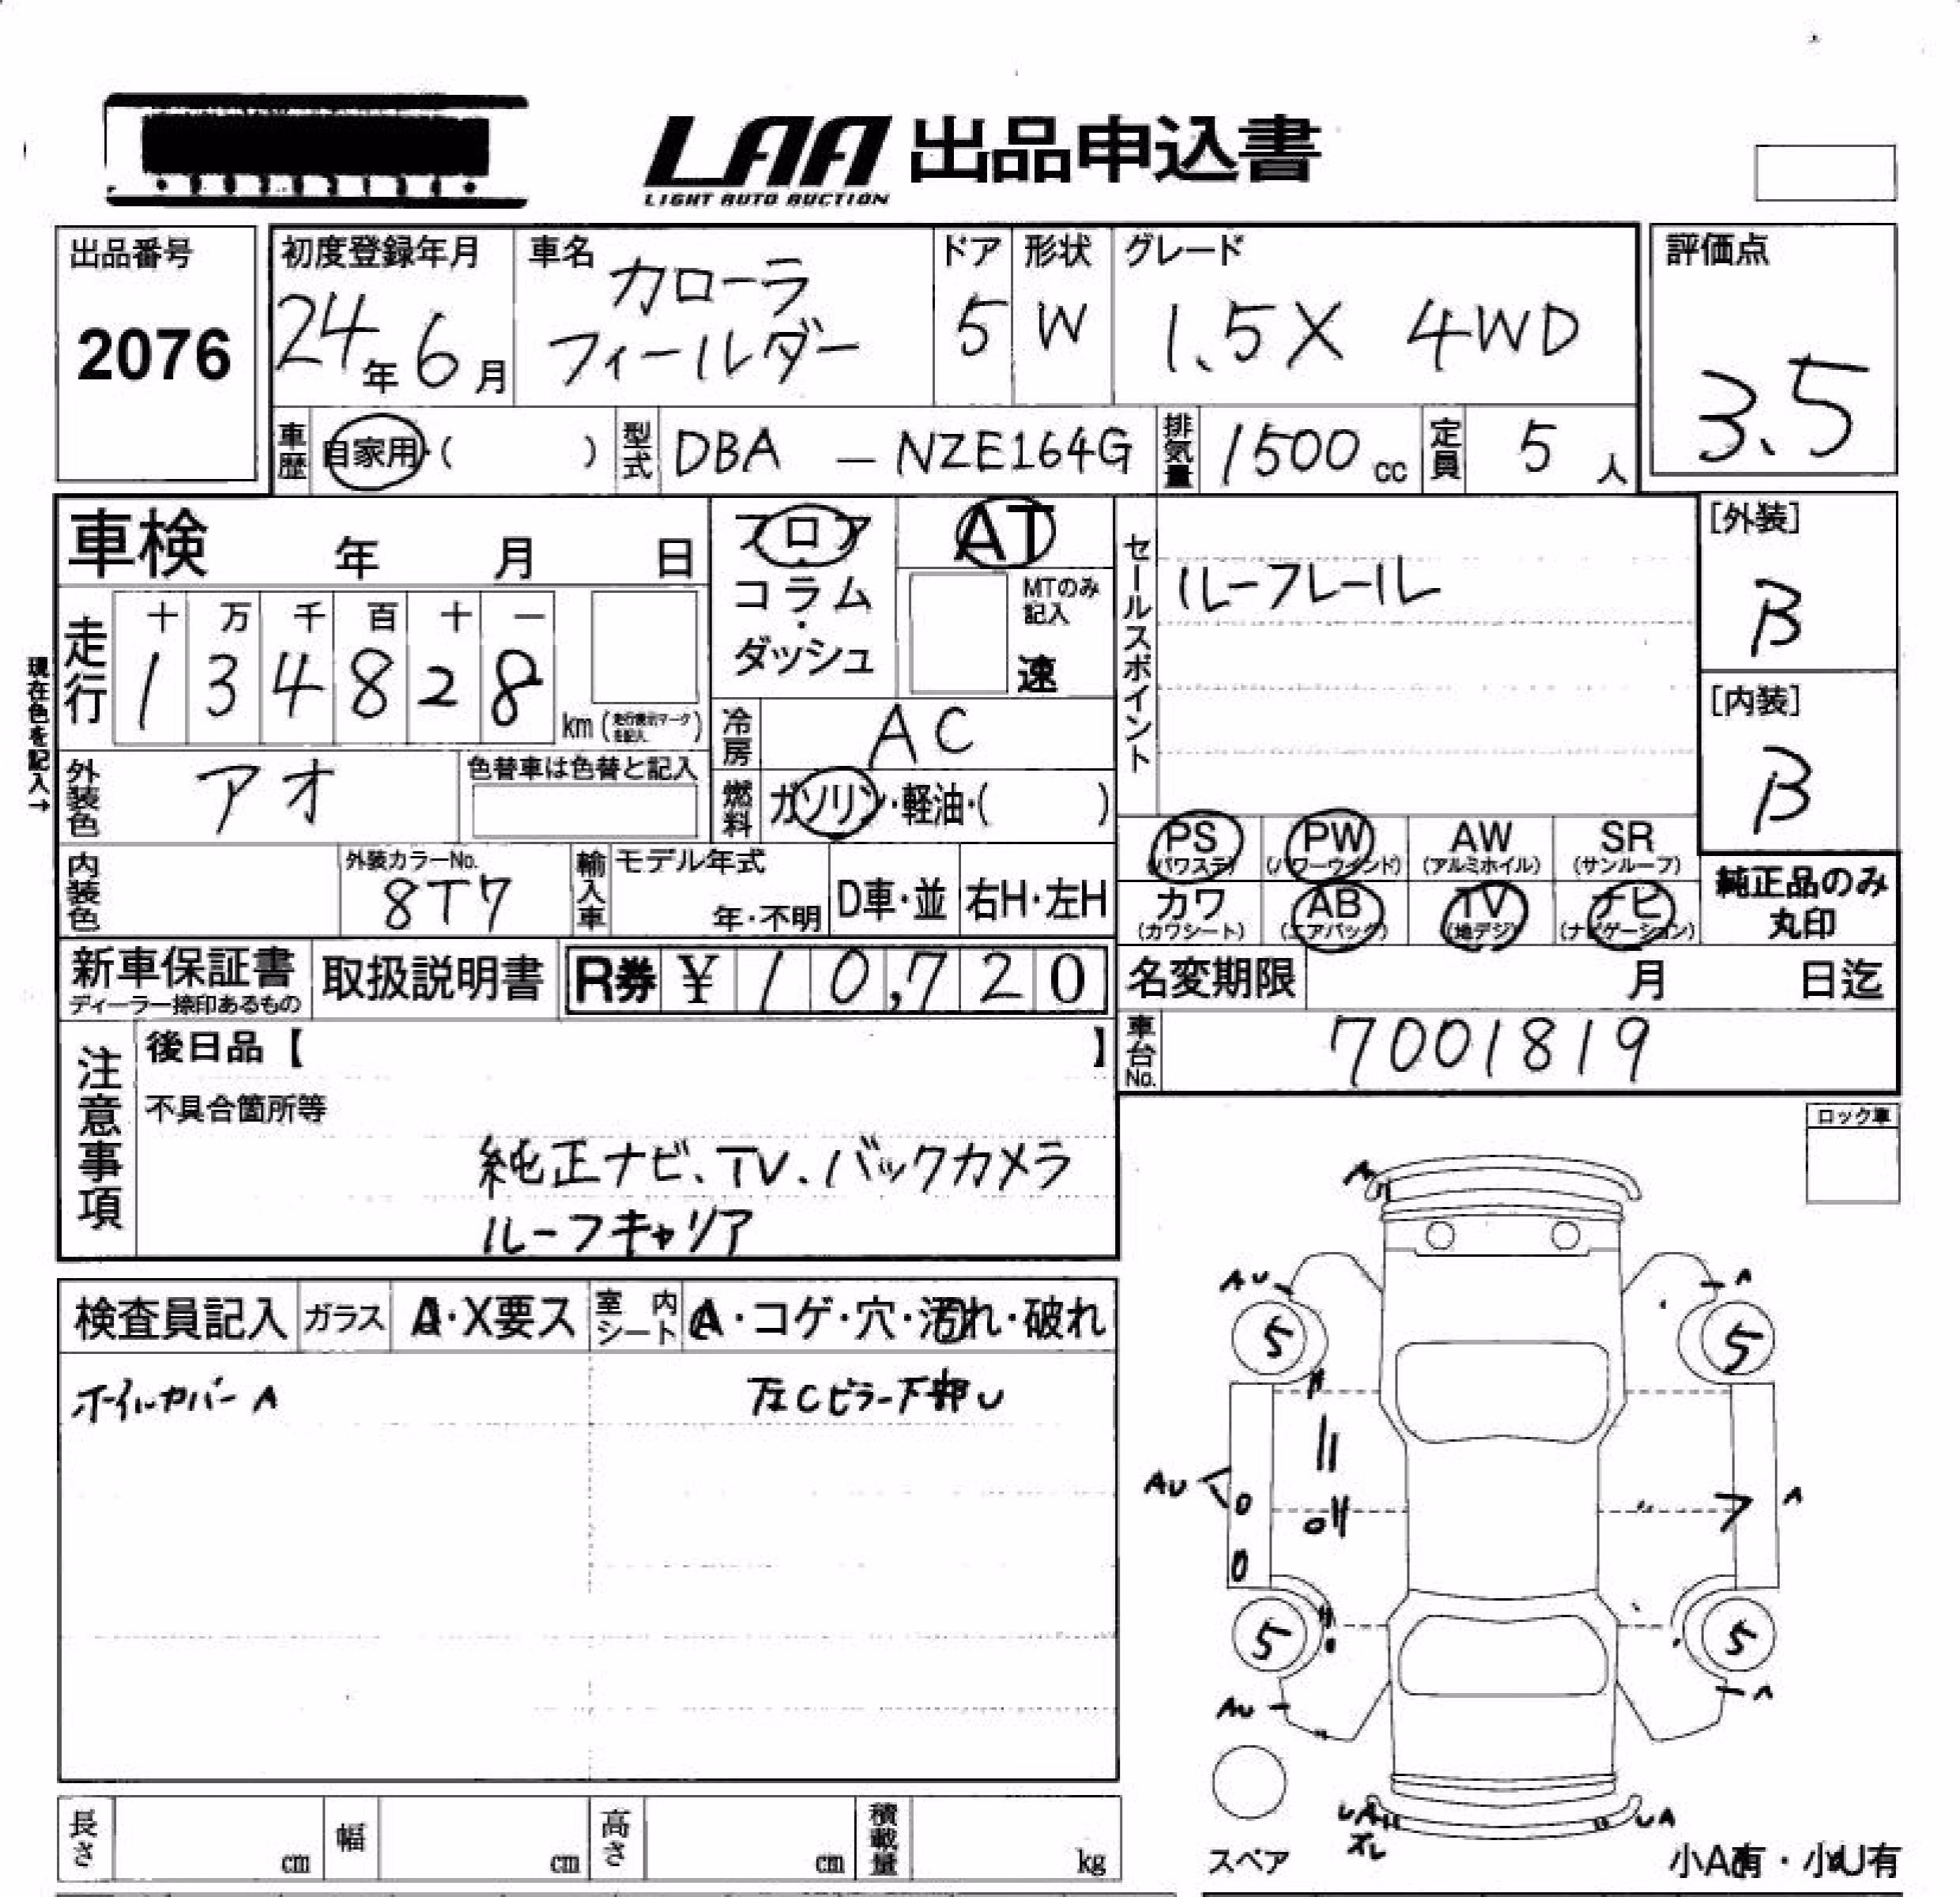 LAA 出品申込書
LIGHT AUTO AUCTION
出品番号
2076
初度登録年月
24年6月
車名
カローラ
フィールダー
ドア
5
形状
W
グレード
1.5X 4WD
評価点
3.5
車歴 自家用・( )
型式 DBA - NZE164G
排気量 1500 cc
定員 5 人
車検 年 月 日
現在色を記入→
走行
十 万 千 百 十 一
1 3 4 8 2 8
km (走行表示マークを記入)
フロア・
コラム・
ダッシュ
AT
MTのみ
記入
速
冷房 AC
燃料 ガソリン・軽油・( )
外装色 アオ
色替車は色替と記入
内装色
外装カラーNo.
8T7
輸入車
モデル年式
年・不明
D車・並
右H・左H
セールスポイント
ルーフレール
[外装]
B
[内装]
B
PS
(パワステ)
PW
(パワーウインド)
AW
(アルミホイル)
SR
(サンルーフ)
カワ
(カワシート)
AB
(エアバック)
TV
(地デジ)
ナビ
(ナビゲーション)
純正品のみ
丸印
新車保証書
ディーラー捺印あるもの
取扱説明書
R券 ¥10,720
名変期限 月 日迄
車台No. 7001819
注意事項
後日品【 】
不具合箇所等
純正ナビ、TV、バックカメラ
ルーフキャリア
ロック車
検査員記入
ガラス A・X要ス
室内シート A・コゲ・穴・汚れ・破れ
ホイルカバーA
左Cピラー下部U
A
AU
A
5
5
AU
A
5
5
AU
A
UA
ズレ
UA
スペア
小A有・小U有
長さ cm
幅 cm
高さ cm
積載量 kg